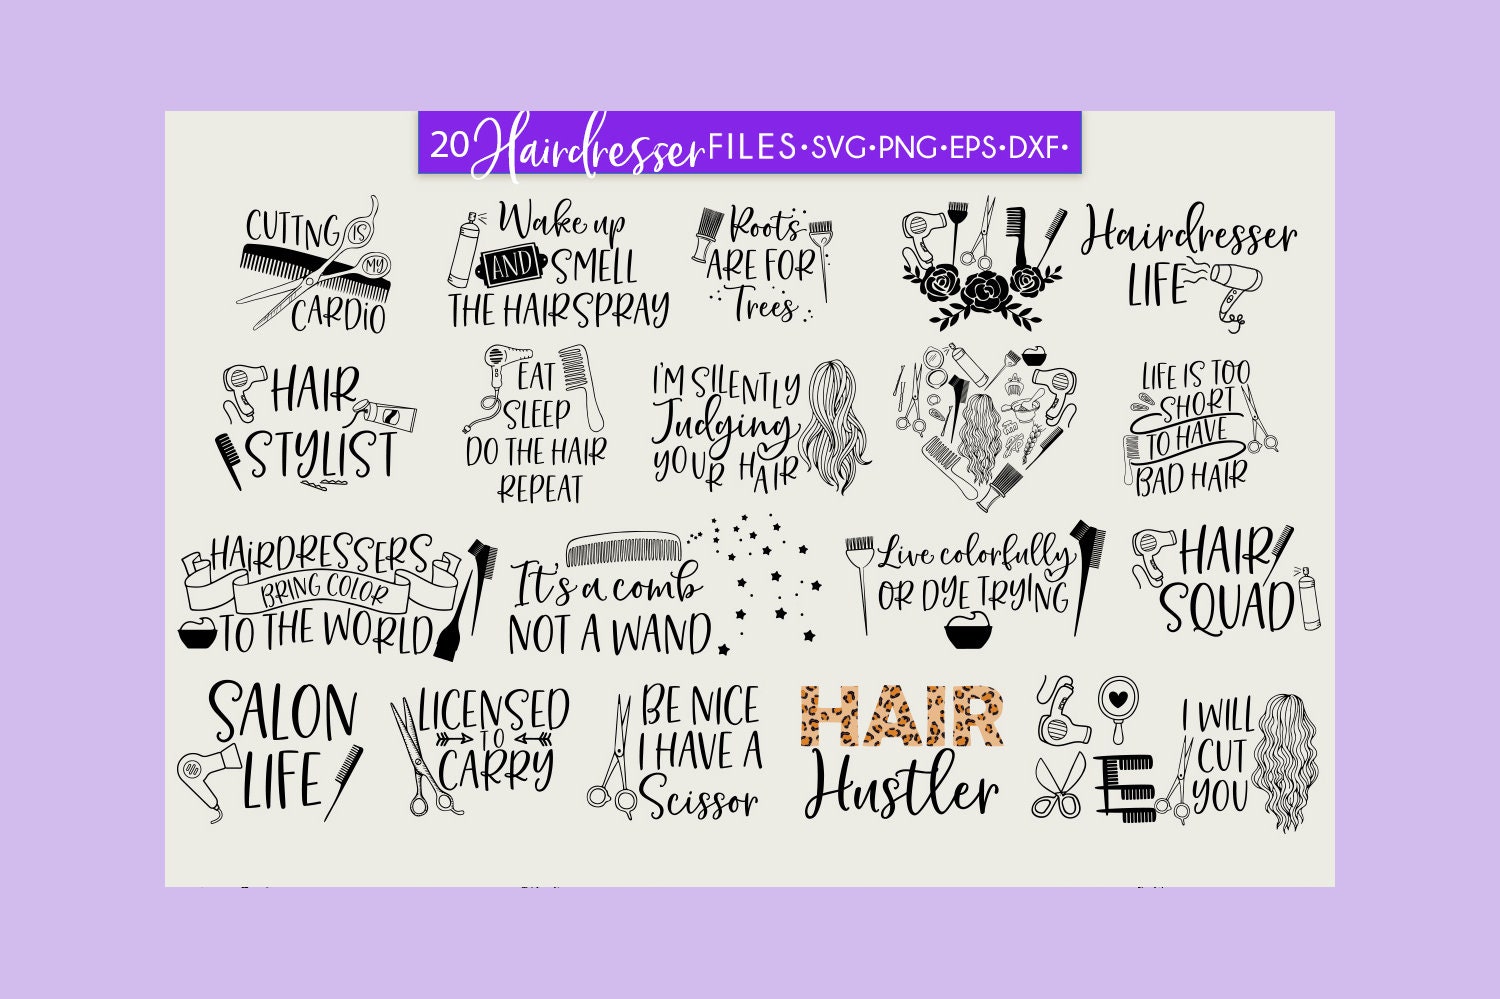 20 Hairdresser FILES • SVG • PNG • EPS • DXF •
CUTTNG IS
MY
CARDiO
Wake up
AND SMELL
THE HAIRSPRAY
Roots
ARE FOR
Trees
Hairdresser
LIFE
HAIR
STYLIST
EAT
SLEEP
DO THE HAIR
REPEAT
I'M SILENTLY
Judging
YOUR HAIR
LIFE IS TOO
SHORT
TO HAVE
BAD HAIR
HAiRDRESSERS
BRING COLOR
TO THE WORLD
It's a comb
NOT A WAND
Live colorfully
OR DYE TRYING
HAIR
SQUAD
SALON
LIFE
LICENSED
TO
CARRY
BE NICE
I HAVE A
Scissor
HAIR
Hustler
E
I WILL
CUT
YOU